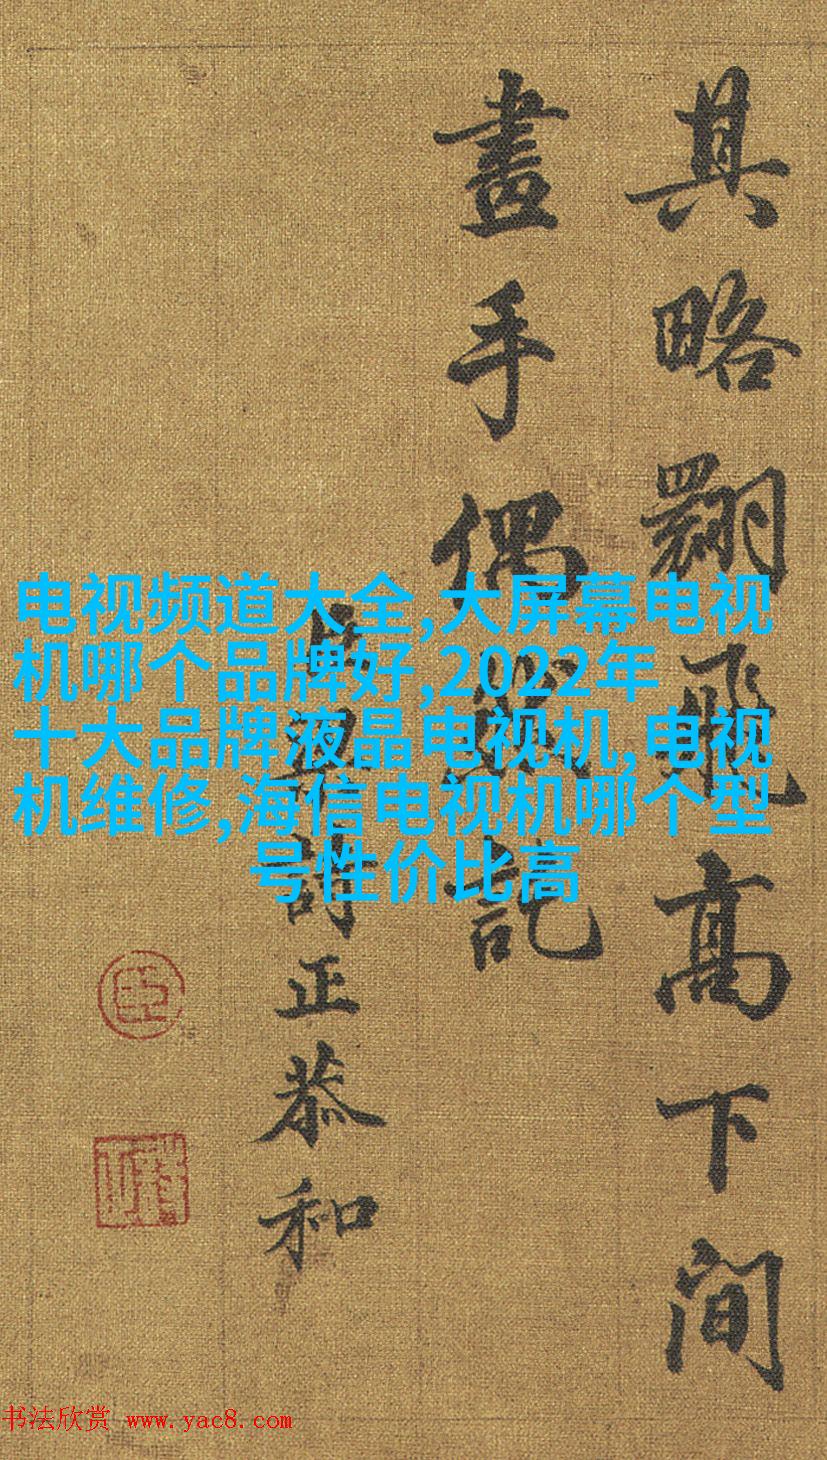 其略翾飛高下間
畫手偶然記
臣梁詩正恭和
电视频道大全,大屏幕电视
机哪个品牌好,2022年
十大品牌液晶电视机,电视
机维修,海信电视机哪个型
号性价比高
臣
书法欣赏 www.yac8.com